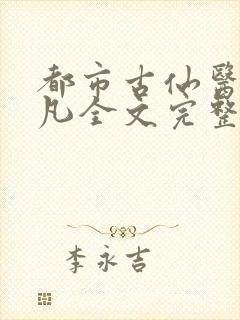 都市古仙醫
凡全文完整
李永吉